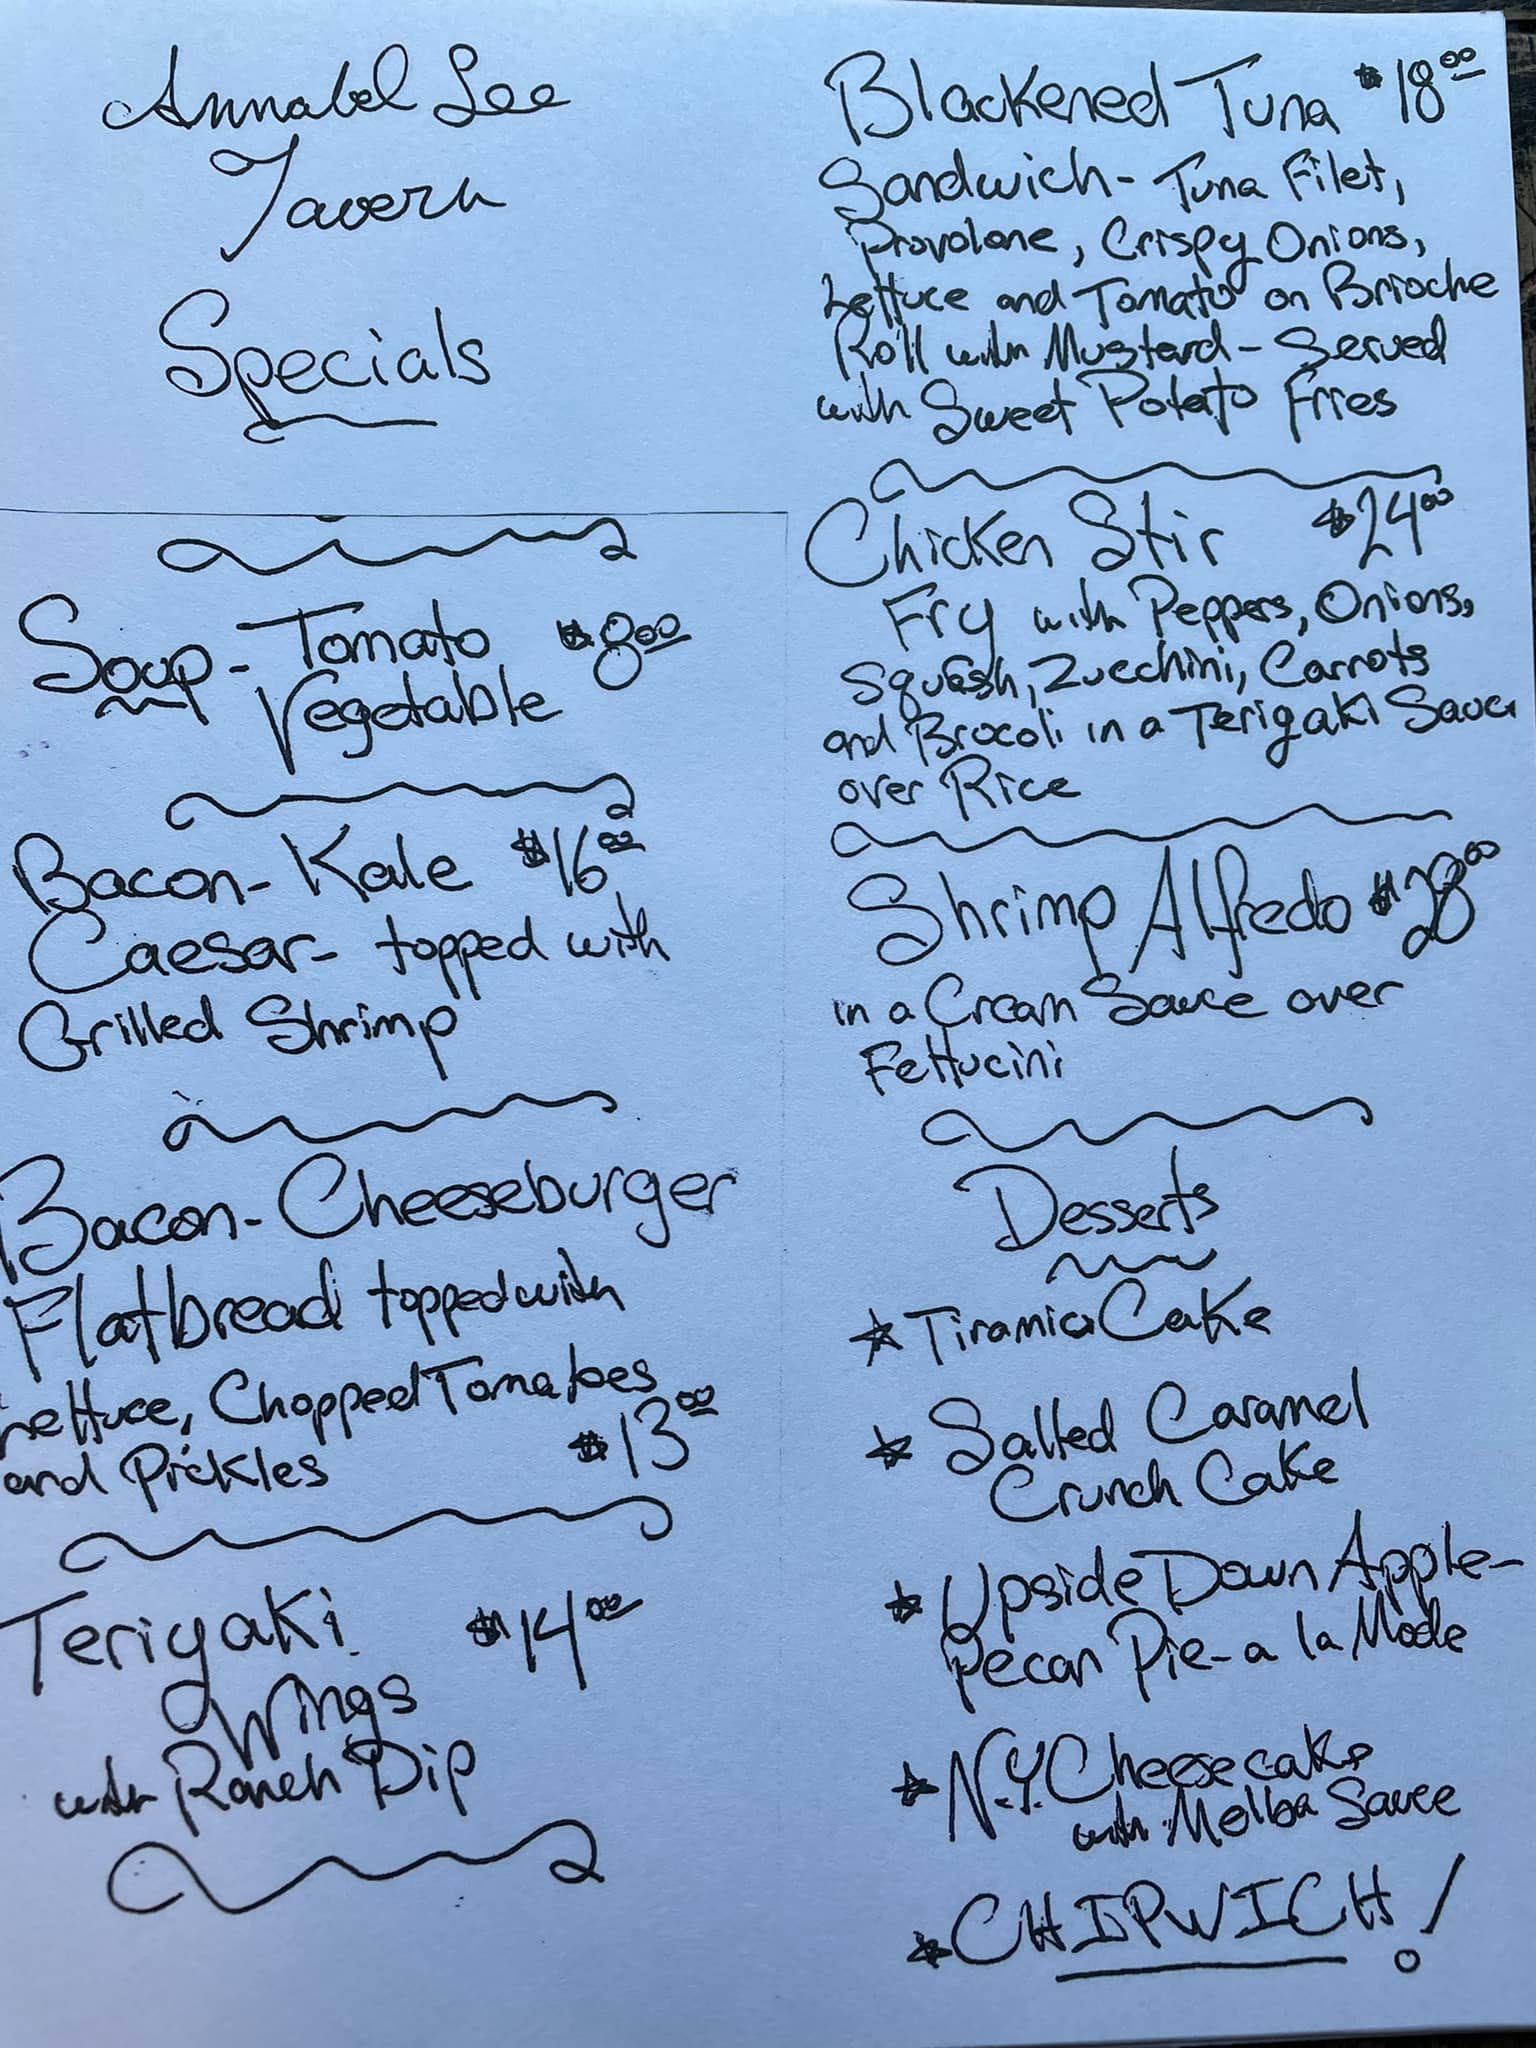 Annabel Lee
Tavern
Specials
Soup - Tomato $8.00
Vegetable
Bacon - Kale $16.00
Caesar - topped with
Grilled Shrimp
Bacon - Cheeseburger
Flatbread topped with
Lettuce, Chopped Tomatoes
and Pickles $13.00
Teriyaki $14.00
Wings
with Ranch Dip
Blackened Tuna $18.00
Sandwich - Tuna Filet,
Provolone, Crispy Onions,
Lettuce and Tomato on Brioche
Roll with Mustard - Served
with Sweet Potato Fries
Chicken Stir $24.00
Fry with Peppers, Onions,
Squash, Zucchini, Carrots
and Brocoli in a Teriyaki Sauce
over Rice
Shrimp Alfredo $28.00
in a Cream Sauce over
Fettucini
Desserts
★ Tiramisu Cake
★ Salted Caramel
Crunch Cake
★ Upside Down Apple-
Pecan Pie - a la Mode
★ N.Y. Cheesecake
with Melba Sauce
★ CHIPWICH!